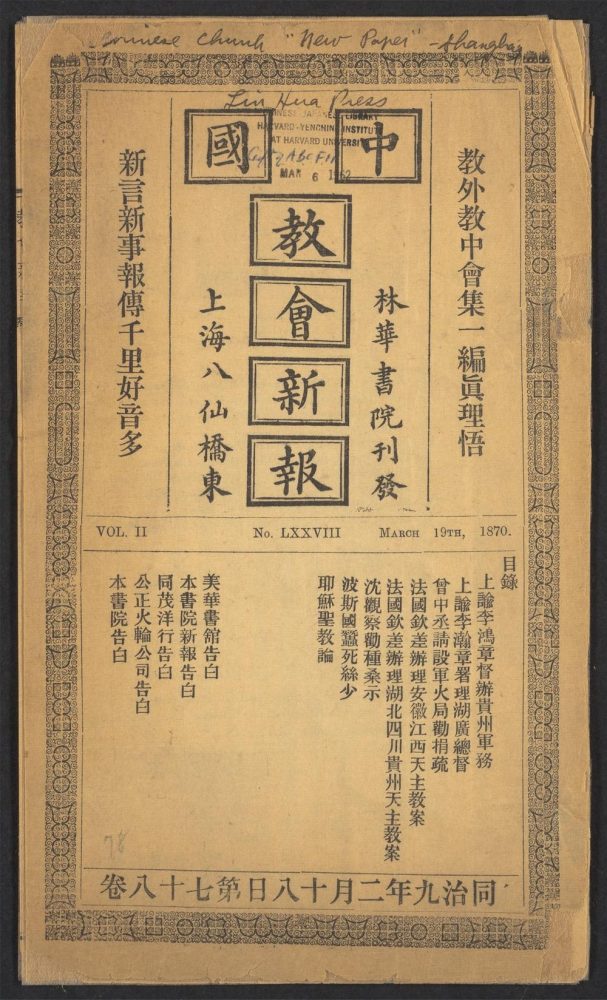 Chinese Church "News Paper" - Shanghai
Lin Hua Press
CHINESE-JAPANESE LIBRARY
HARVARD-YENCHING INSTITUTE
AT HARVARD UNIVERSITY
MAR 6 1952
中國
教會新報
教外教中會集一編眞理悟
林華書院刊發
上海八仙橋東
新言新事報傳千里好音多
VOL. II No. LXXVIII MARCH 19TH, 1870.
目錄
上諭李鴻章督辦貴州軍務
上諭李瀚章署理湖廣總督
曾中丞請設軍火局勸捐疏
法國欽差辦理安徽江西天主教案
法國欽差辦理湖北四川貴州天主教案
沈觀察勸種桑示
波斯國蠶死絲少
耶穌聖教論
美華書館告白
本書院新報告白
同茂洋行告白
公正火輪公司告白
本書院告白
78
同治九年二月十八日第七十八卷